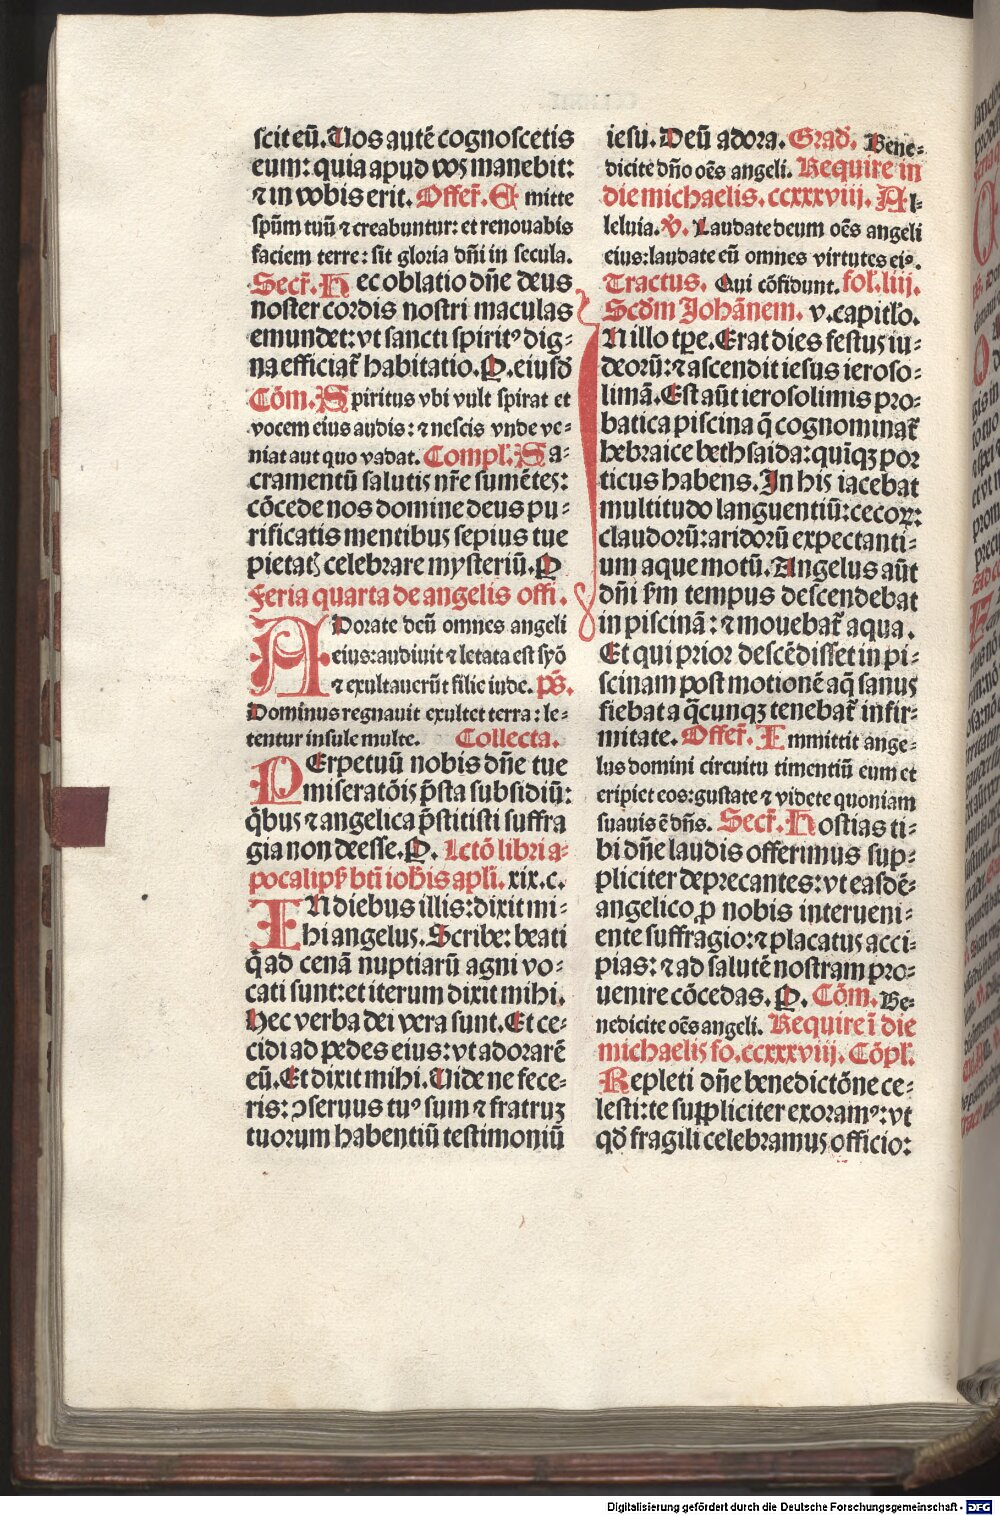 scit eū. Uos autē cognoscetis
eum: quia apud vos manebit:
⁊ in vobis erit. Offer̄. Emitte
spūm tuū ⁊ creabuntur: et renouabis
faciem terre: sit gloria dn̄i in secula.
Secr̄. Hec oblatio dn̄e deus
noster cordis nostri maculas
emundet: vt sancti spiritꝰ dig-
na efficiat̄ habitatio. P. eiusd̄
Cōm. Spiritus vbi vult spirat et
vocem eius audis: ⁊ nescis vnde ve-
niat aut quo vadat. Compl̄. Sa-
cramentū salutis nr̄e sumētes:
cōcede nos domine deus pu-
rificatis mentibus sepius tue
pietatꝭ celebrare mysteriū. P
Feria quarta de angelis offi.
ADorate deū omnes angeli
eius: audiuit ⁊ letata est syō
⁊ exultauerūt filie iude. ps̄.
Dominus regnauit exultet terra: le-
tentur insule multe. Collecta.
PErpetuū nobis dn̄e tue
miseratōis p̄sta subsidiū:
q̄bus ⁊ angelica p̄stitisti suffra
gia non deesse. P. Lctō libri a-
pocalipꝭ bt̄i ioh̄is apl̄i. xix. c.
IN diebus illis: dixit mi-
hi angelus. Scribe: beati
q̄ ad cenā nuptiarū agni vo-
cati sunt: et iterum dixit mihi.
Hec verba dei vera sunt. Et ce-
cidi ad pedes eius: vt adorarē
eū. Et dixit mihi. Uide ne fece-
ris: ↄseruus tuꝰ sum ⁊ fratruꝫ
tuorum habentiū testimoniū
iesu. Deū adora. Grad̄. Bene-
dicite dn̄o oēs angeli. Require in
die michaelis. ccxxxviij. Al-
leluia. ℣. Laudate deum oēs angeli
eius: laudate eū omnes virtutes eiꝰ.
Tractus. Qui cōfidunt. fol. liij.
Scd̄m Johānem. v. capitlo.
IN illo tp̄e. Erat dies festus iu-
deorū: ⁊ ascendit iesus ieroso-
limā. Est aūt ierosolimis pro-
batica piscina q̄ cognominat̄
hebraice bethsaida: quīqꝫ por
ticus habens. In his iacebat
multitudo languentiū: cecoꝝ:
claudorū: aridorū expectanti-
um aque motū. Angelus aūt
dn̄i ẜm tempus descendebat
in piscinā: ⁊ mouebat̄ aqua.
Et qui prior descēdisset in pi-
scinam post motionē aq̄ sanus
fiebat a q̄cunqꝫ tenebat̄ infir-
mitate. Offer̄. Immittit ange-
lus domini circuitu timentiū eum et
eripiet eos: gustate ⁊ videte quoniam
suauis ē dn̄s. Secr̄. Hostias ti-
bi dn̄e laudis offerimus sup-
pliciter deprecantes: vt easdē-
angelico ꝓ nobis interueni-
ente suffragio: ⁊ placatus acci-
pias: ⁊ ad salutē nostram pro-
uenire cōcedas. P. Cōm. Be-
nedicite oēs angeli. Require ī die
michaelis fo. ccxxxviij. Cōpl̄.
Repleti dn̄e benedictōne ce-
lesti: te suppliciter exoramꝰ: vt
qd̄ fragili celebramus officio:
Digitalisierung gefördert durch die Deutsche Forschungsgemeinschaft - DFG